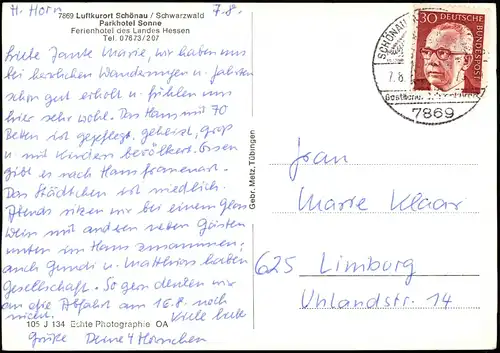 H. Horn
7.8.
7869 Luftkurort Schönau / Schwarzwald
Parkhotel Sonne
Ferienhotel des Landes Hessen
Tel. 07673/207
Liebe Tante Marie, wir haben uns
bei herrlichen Wanderungen u. Fahrten
schon gut erholt u. fühlen uns
hier sehr wohl. Das Haus mit 70
Betten ist gepflegt, geheizt, groß
u. mit Kindern bevölkert. Essen
gibt es nach Hausfrauenart.
Das Städtchen ist niedlich.
Abends sitzen wir bei einem Glas
Wein mit anderen netten Gästen
unten im Haus zusammen;
auch Gundi u. Matthias haben
Gesellschaft. So gern denken wir
an die Abfahrt am 16.8. noch
nicht. Viele liebe
Grüße Deine 4 Hörnchen
105 J 134 Echte Photographie OA
Gebr. Metz, Tübingen
30
DEUTSCHE
BUNDESPOST
SCHÖNAU
7.8.
7869
Frau
Marie Klaar
625 Limburg
Uhlandstr. 14